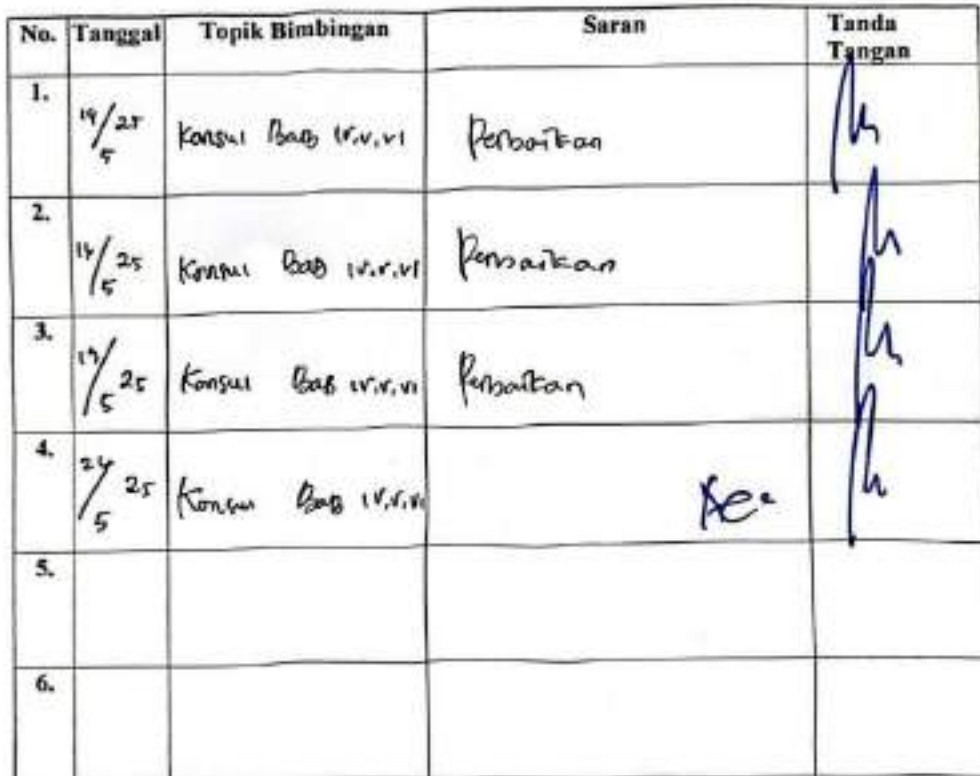 No. Tanggal Topik Bimbingan Saran Tanda Tangan
1. /25 5 Konsul Bab IV,V,VI Perbaikan
2. /25 5 Konsul Bab IV,V,VI Perbaikan
3. /25 5 Konsul Bab IV,V,VI Perbaikan
4. 24/25 5 Konsul Bab IV,V,VI Acc
5.
6.